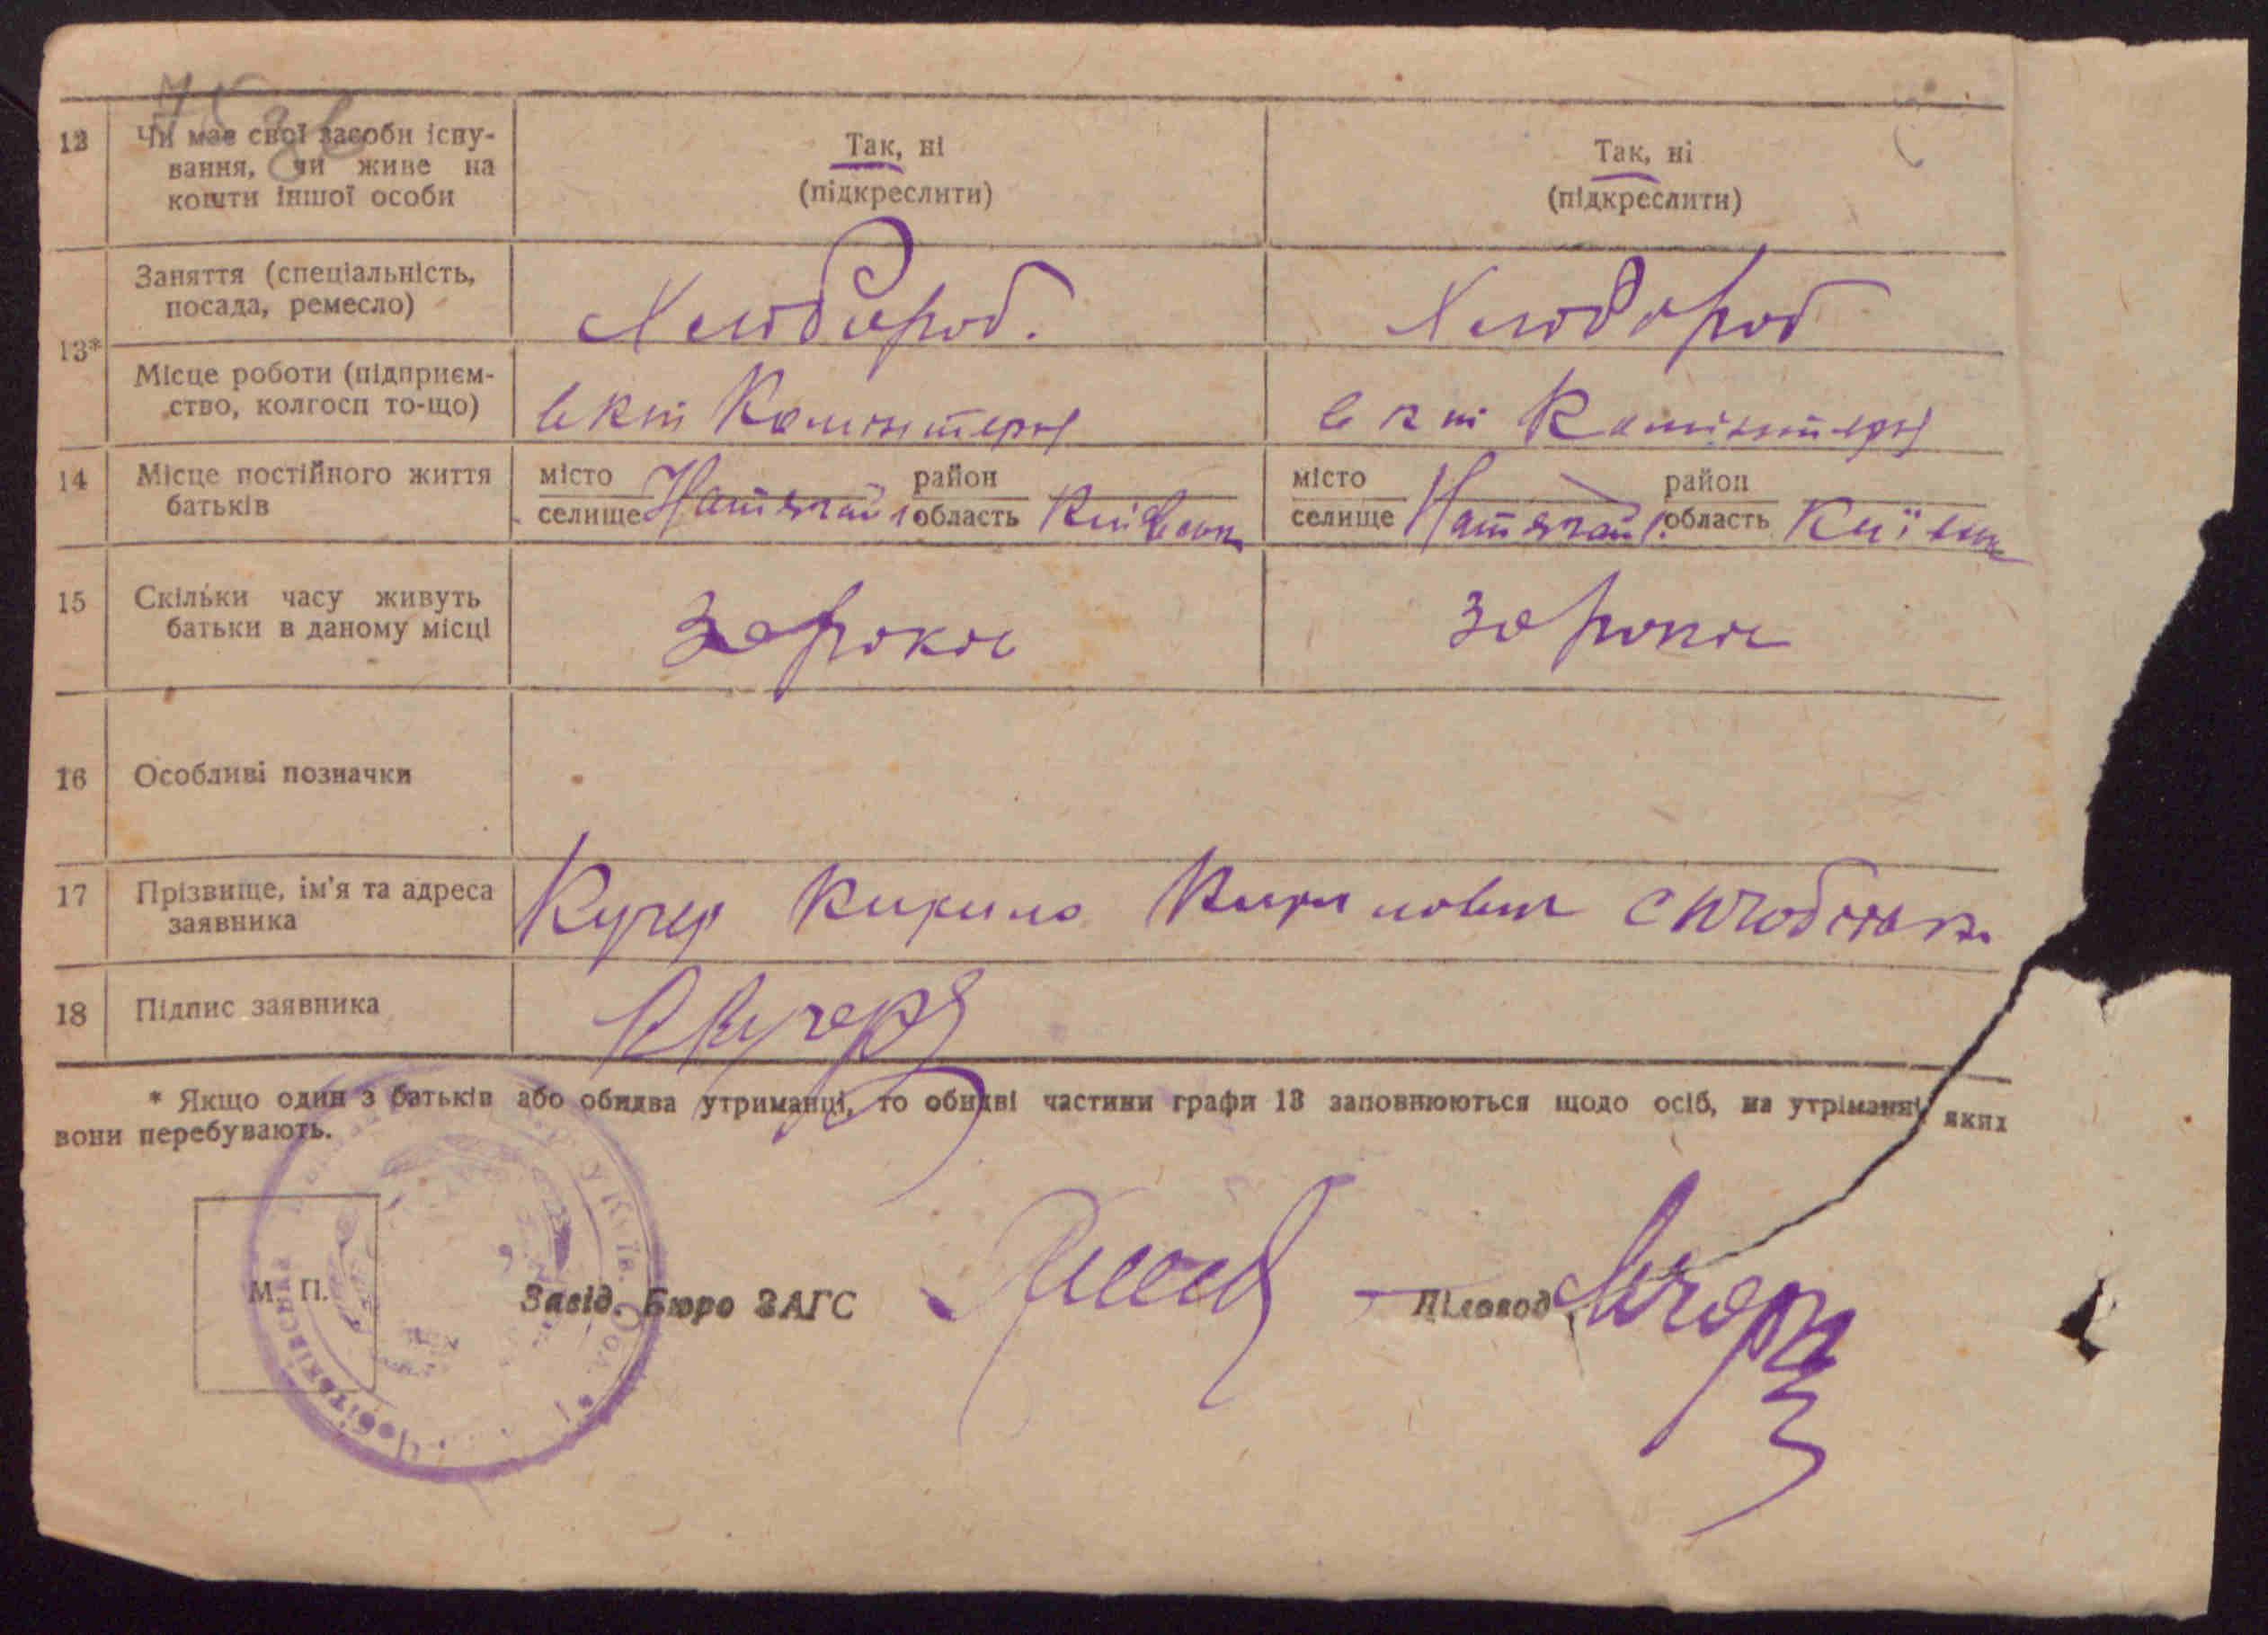 12 Чи має свої засоби існу-
вання, чи живе на
кошти іншої особи
Так, ні
(підкреслити)
Так, ні
(підкреслити)
13*
Заняття (спеціальність,
посада, ремесло)
Хлибороб.
Хлибороб
Місце роботи (підприєм-
ство, колгосп то-що)
в кт Комінтерн
в кт Комінтерн
14 Місце постійного життя
батьків
місто
селище
район
область Київськ
місто
селище
район
область Київськ
15 Скільки часу живуть
батьки в даному місці
30 років
30 років
16 Особливі позначки
17 Прізвище, ім'я та адреса
заявника
Кучер Кирило Кирилович
18 Підпис заявника
ККучер
* Якщо один з батьків або обидва утриманці, то обидві частини графи 13 заповнюються щодо осіб, на утріманні яких
вони перебувають.
М. П.
Завід. Бюро ЗАГС
Діловод